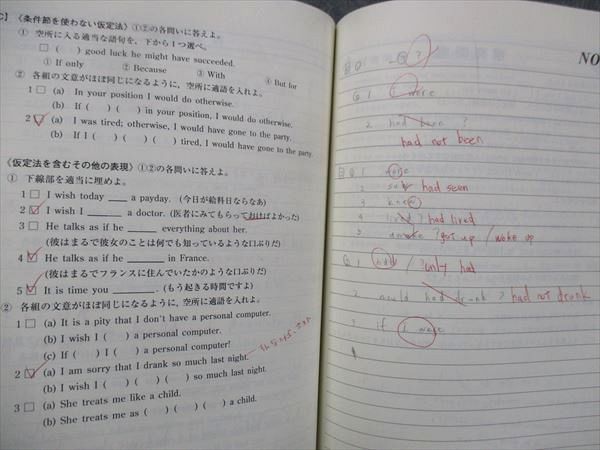 C】《条件節を使わない仮定法》①②の各問いに答えよ。
① 空所に入る適当な語句を，下から1つ選べ。
□ (　) good luck he might have succeeded.
① If only　② Because　③ With　④ But for
② 各組の文意がほぼ同じになるように，空所に適語を入れよ。
1 □ (a) In your position I would do otherwise.
(b) If (　)(　) in your position, I would do otherwise.
2 □ (a) I was tired; otherwise, I would have gone to the party.
(b) If I (　)(　)(　) tired, I would have gone to the party.
《仮定法を含むその他の表現》①②の各問いに答えよ。
① 下線部を適当に埋めよ。
1 □ I wish today ____ a payday. (今日が給料日ならなあ)
2 □ I wish I ____ a doctor. (医者にみてもらっておけばよかった)
3 □ He talks as if he ____ everything about her.
(彼はまるで彼女のことは何でも知っているような口ぶりだ)
4 □ He talks as if he ____ in France.
(彼はまるでフランスに住んでいたかのような口ぶりだ)
5 □ It is time you ____. (もう起きる時間ですよ)
② 各組の文意がほぼ同じになるように，空所に適語を入れよ。
1 □ (a) It is a pity that I don't have a personal computer.
(b) I wish I (　) a personal computer.
(c) If (　) I (　) a personal computer!
2 □ (a) I am sorry that I drank so much last night.
(b) I wish I (　)(　)(　) so much last night.
3 □ (a) She treats me like a child.
(b) She treats me as (　)(　)(　) a child.
NO
1 I were
2 had been ?
had not been
2 saw had seen
3 knew
4 lived ? had lived
5 awoke ? got up / woke up
1 had / ? only had
2 would had drunk ? had not drunk
3 if I were